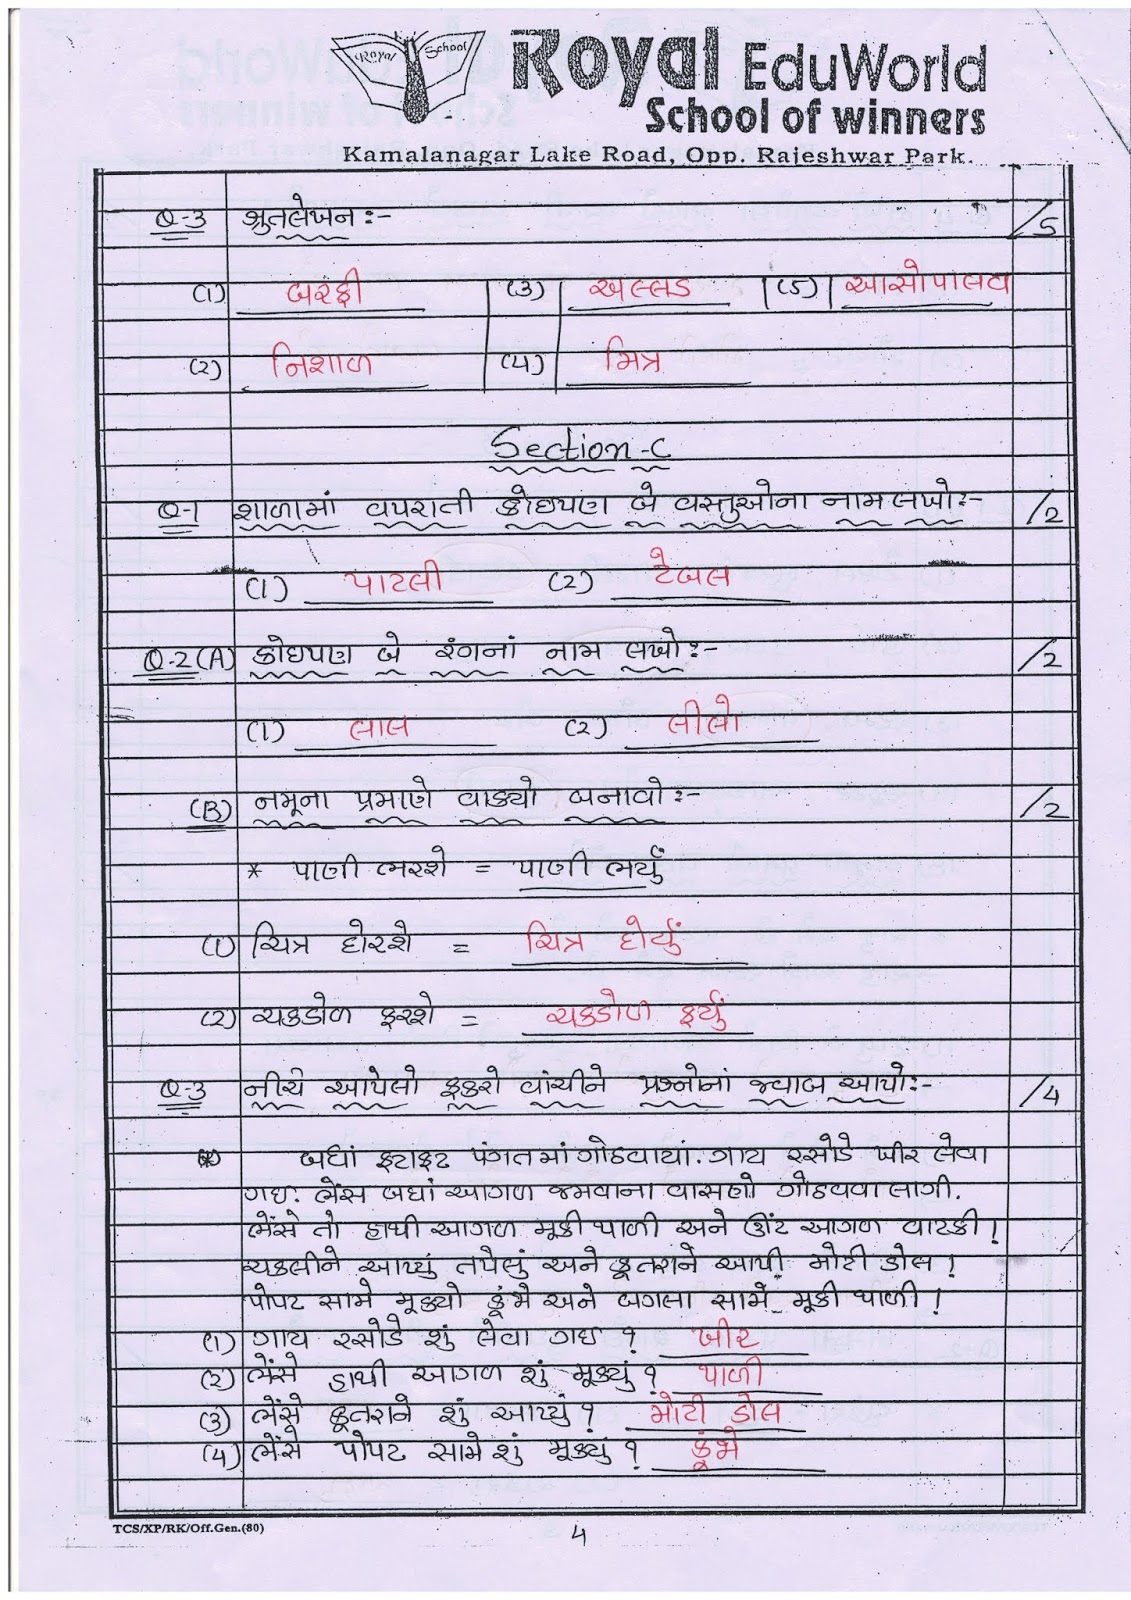 Royal School
Royal EduWorld
School of winners
Kamalanagar Lake Road, Opp. Rajeshwar Park.
Q-3 શ્રુતલેખન :- /5
(1) બરફી (3) અલ્લડ (5) આસોપાલવ
(2) નિશાળ (4) મિત્ર
Section-C
Q-1 શાળામાં વપરાતી કોઇપણ બે વસ્તુઓના નામ લખો:- /2
(1) પાટલી (2) ટેબલ
Q-2(A) કોઇપણ બે રંગનાં નામ લખો:- /2
(1) લાલ (2) લીલો
(B) નમૂના પ્રમાણે વાક્યો બનાવો:- /2
* પાણી ભરશે = પાણી ભર્યું
(1) ચિત્ર દોરશે = ચિત્ર દોર્યું
(2) ચકડોળ ફરશે = ચકડોળ ફર્યું
Q-3 નીચે આપેલો ફકરો વાંચીને પ્રશ્નોનાં જવાબ આપો:- /4
બધાં ફટાફટ પંગતમાં ગોઠવાયાં. ગાય રસોડે ખીર લેવા
ગઇ. ભેંસ બધાં આગળ જમવાના વાસણો ગોઠવવા લાગી.
ભેંસે તો હાથી આગળ મૂકી થાળી અને ઊંટ આગળ વાટકી !
ચકલીને આપ્યું તપેલું અને કૂતરાને આપી મોટી ડોલ !
પોપટ સામે મૂક્યો કૂંભે અને બગલા સામે મૂકી થાળી !
(1) ગાય રસોડે શું લેવા ગઇ ? ખીર
(2) ભેંસે હાથી આગળ શું મૂક્યું ? થાળી
(3) ભેંસે કૂતરાને શું આપ્યું ? મોટી ડોલ
(4) ભેંસે પોપટ સામે શું મૂક્યું ? કૂંભે
TCS/XP/RK/Off.Gen.(80)
4